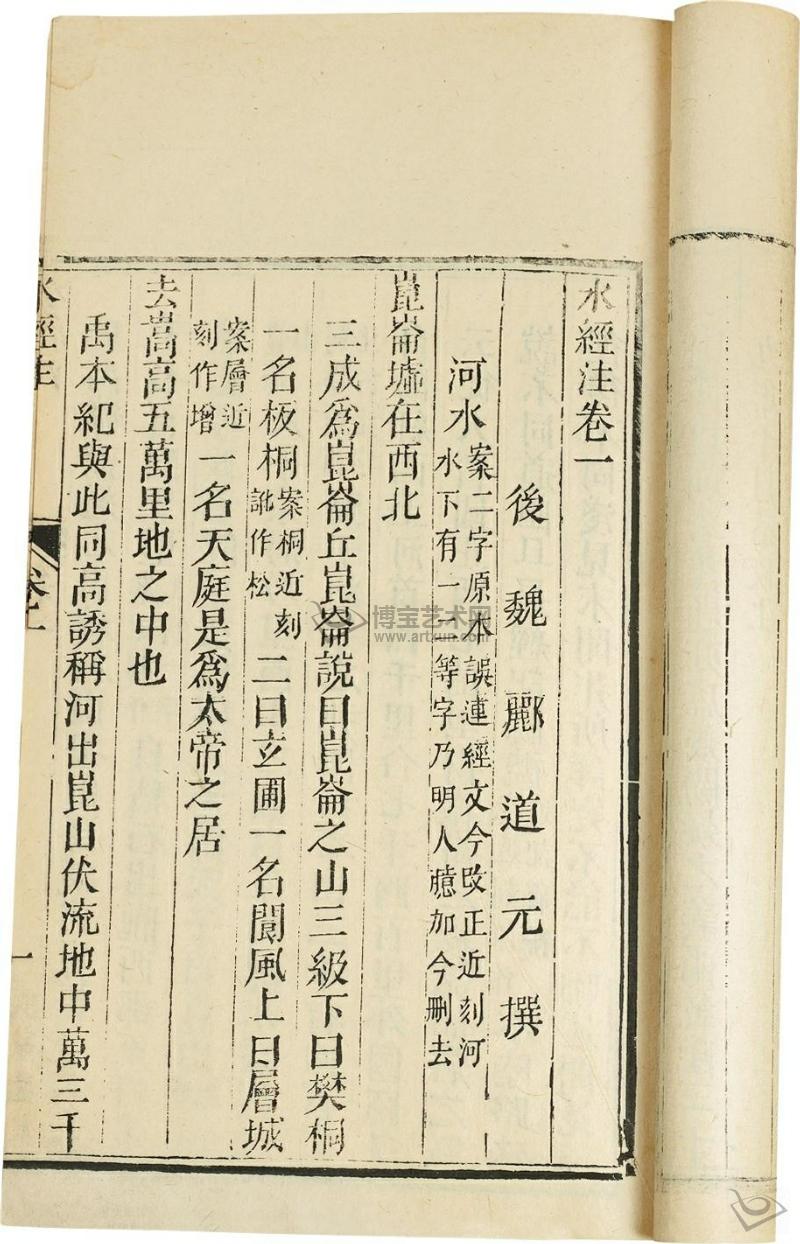 水經注卷一
後魏酈道元撰
河水案二字原本誤連經文今改正近刻河水下有一二等字乃明人臆加今刪去
崑崙墟在西北
三成爲崑崙丘崑崙說曰崑崙之山三級下曰樊桐
一名板桐案桐近刻訛作松二曰玄圃一名閬風上曰層城
案層近刻作增一名天庭是爲太帝之居
去嵩高五萬里地之中也
禹本紀與此同高誘稱河出崑山伏流地中萬三千
水經注 卷一 一
博宝艺术网
www.artxun.com